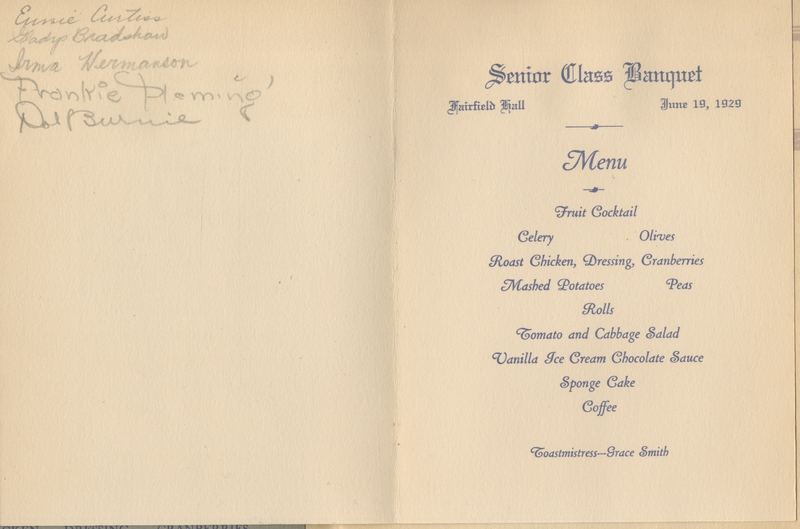 Eunie Curtiss
Gladys Bradshaw
Irma Hermanson
"Frankie Fleming"
Dot Burnie
Senior Class Banquet
Fairfield Hall June 19, 1929
Menu
Fruit Cocktail
Celery Olives
Roast Chicken, Dressing, Cranberries
Mashed Potatoes Peas
Rolls
Tomato and Cabbage Salad
Vanilla Ice Cream Chocolate Sauce
Sponge Cake
Coffee
Toastmistress---Grace Smith
DRESSING CRANBERRIES